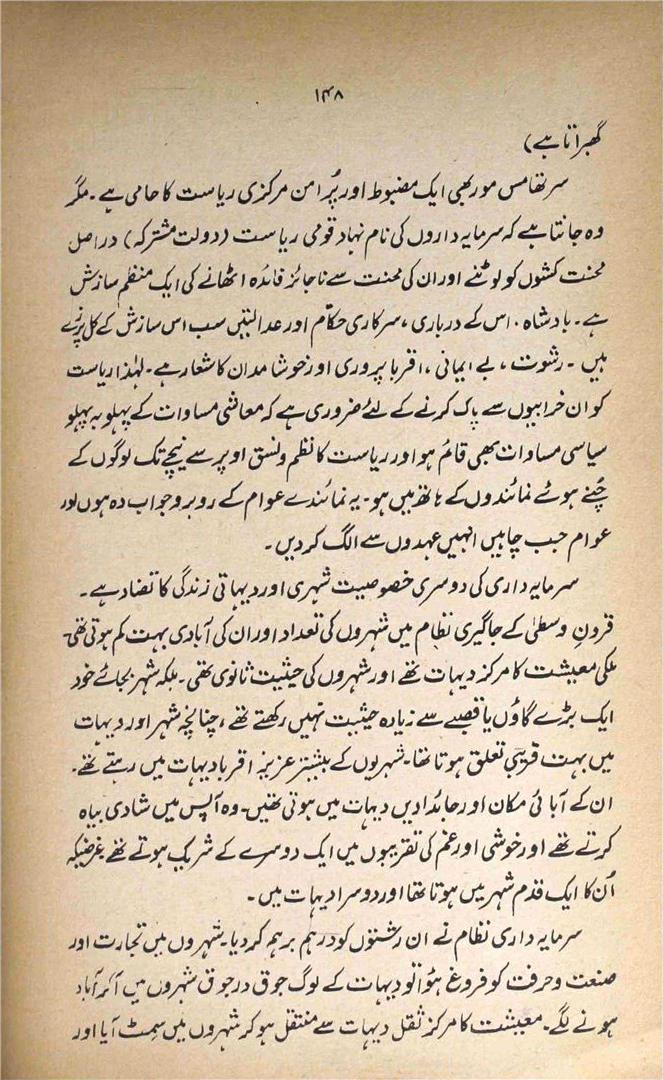 ۱۴۸
گھبراتا ہے)
سر تھامس مور بھی ایک مضبوط اور پُر امن مرکزی ریاست کا حامی ہے۔ مگر
وہ جانتا ہے کہ سرمایہ داروں کی نام نہاد قومی ریاست (دولت مشترکہ) دراصل
محنت کشوں کو لوٹنے اور ان کی محنت سے ناجائز فائدہ اٹھانے کی ایک منظم سازش
ہے۔ بادشاہ، اس کے درباری، سرکاری حکّام اور عدالتیں سب اس سازش کے کل پرزے
ہیں ۔ رشوت ، بے ایمانی ، اقربا پروری اور خوشامد ان کا شعار ہے۔ لہٰذا ریاست
کو ان خرابیوں سے پاک کرنے کے لئے ضروری ہے کہ معاشی مساوات کے پہلو بہ پہلو
سیاسی مساوات بھی قائم ہو اور ریاست کا نظم و نسق اوپر سے نیچے تک لوگوں کے
چُنے ہوئے نمائندوں کے ہاتھ میں ہو۔ یہ نمائندے عوام کے روبرو جواب دہ ہوں اور
عوام جب چاہیں انہیں عہدوں سے الگ کر دیں ۔
سرمایہ داری کی دوسری خصوصیت شہری اور دیہاتی زندگی کا تضاد ہے ۔
قرونِ وسطیٰ کے جاگیری نظام میں شہروں کی تعداد اور ان کی آبادی بہت کم ہوتی تھی۔
ملکی معیشت کا مرکز دیہات تھے اور شہروں کی حیثیت ثانوی تھی۔ بلکہ شہر بجائے خود
ایک بڑے گاؤں یا قصبے سے زیادہ حیثیت نہیں رکھتے تھے ، چنانچہ شہر اور دیہات
میں بہت قریبی تعلق ہوتا تھا۔ شہریوں کے بیشتر عزیز اقربا دیہات میں رہتے تھے۔
ان کے آبائی مکان اور جائدادیں دیہات میں ہوتی تھیں۔ وہ آپس میں شادی بیاہ
کرتے تھے اور خوشی اور غم کی تقریبوں میں ایک دوسرے کے شریک ہوتے تھے غرضیکہ
اُن کا ایک قدم شہر میں ہوتا تھا اور دوسرا دیہات میں۔
سرمایہ داری نظام نے ان رشتوں کو درہم برہم کر دیا۔ شہروں میں تجارت اور
صنعت و حرفت کو فروغ ہوا تو دیہات کے لوگ جوق در جوق شہروں میں آ کر آباد
ہونے لگے۔ معیشت کا مرکز ثقل دیہات سے منتقل ہو کر شہروں میں سمٹ آیا اور